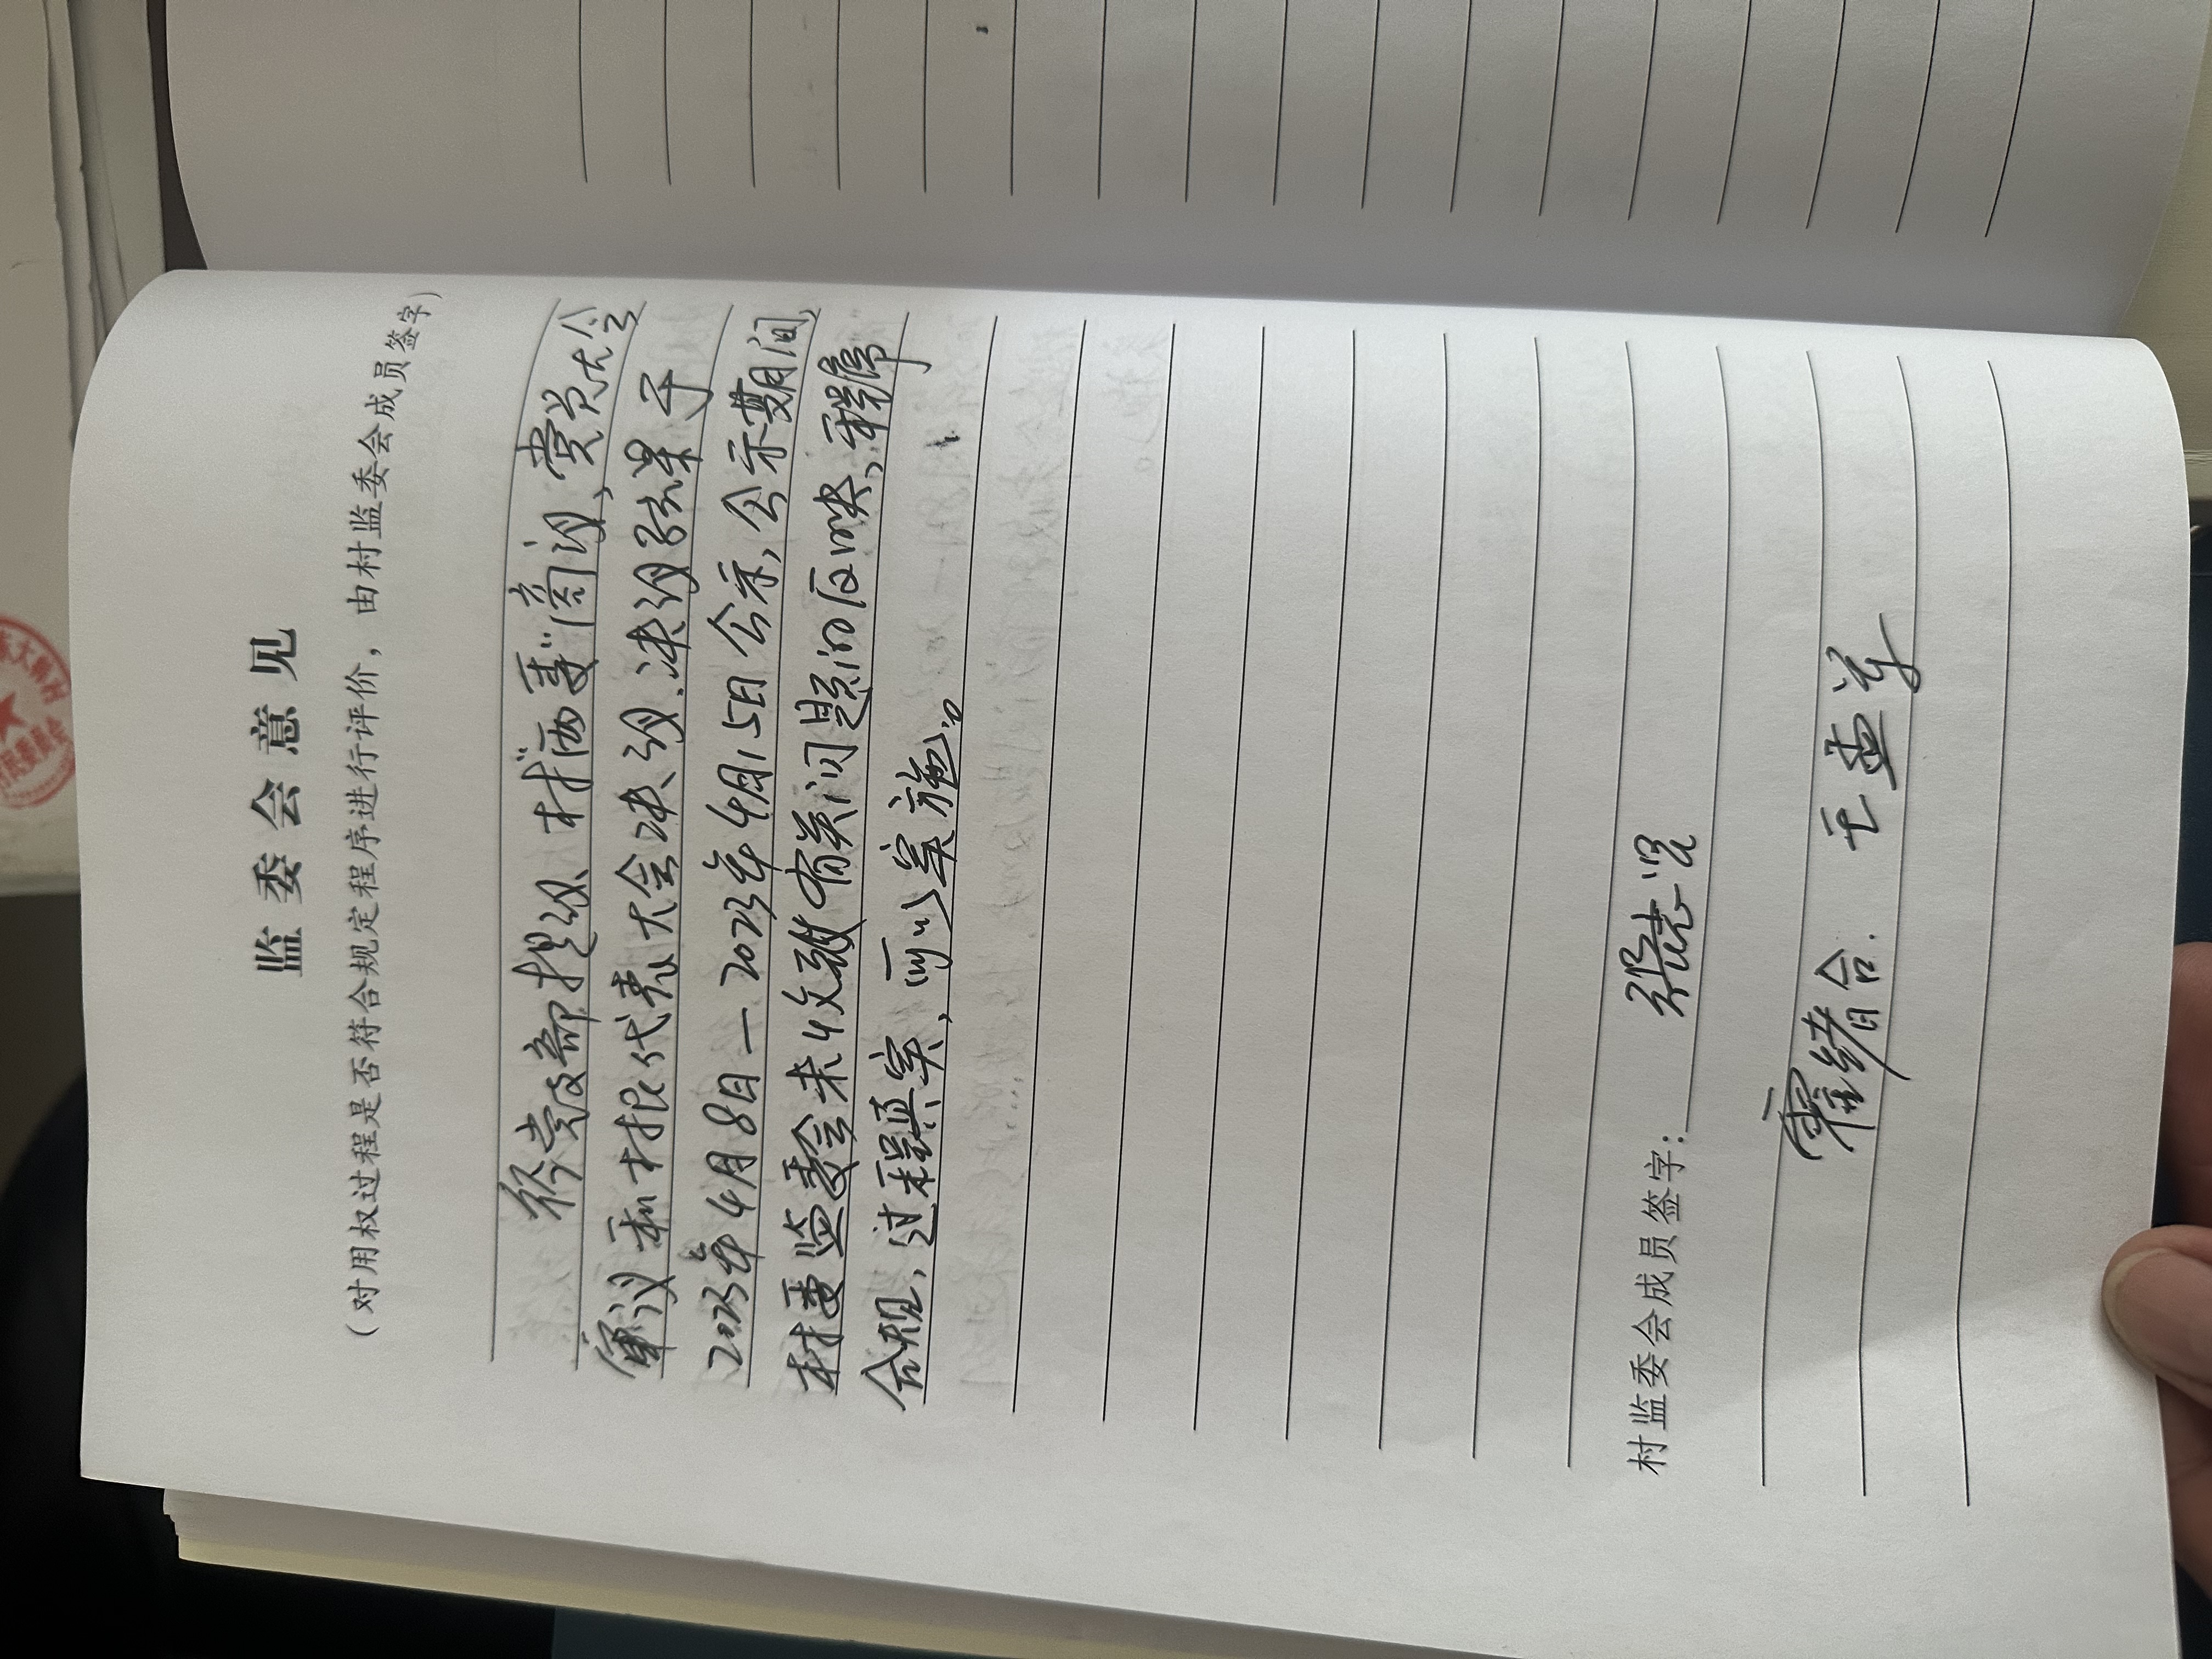 监委会意见
（对用权过程是否符合规定程序进行评价，由村监委会成员签字）
经党支部提议、村“两委”商议，党员大会
审议和村民代表大会决议.决议结果于
2023年4月8日—2023年4月15日公示,公示期间,
村委监委会未收到有关问题的反映,程序
合规,过程真实,可以实施。
村监委会成员签字:张志
霍绪合. 王孟军